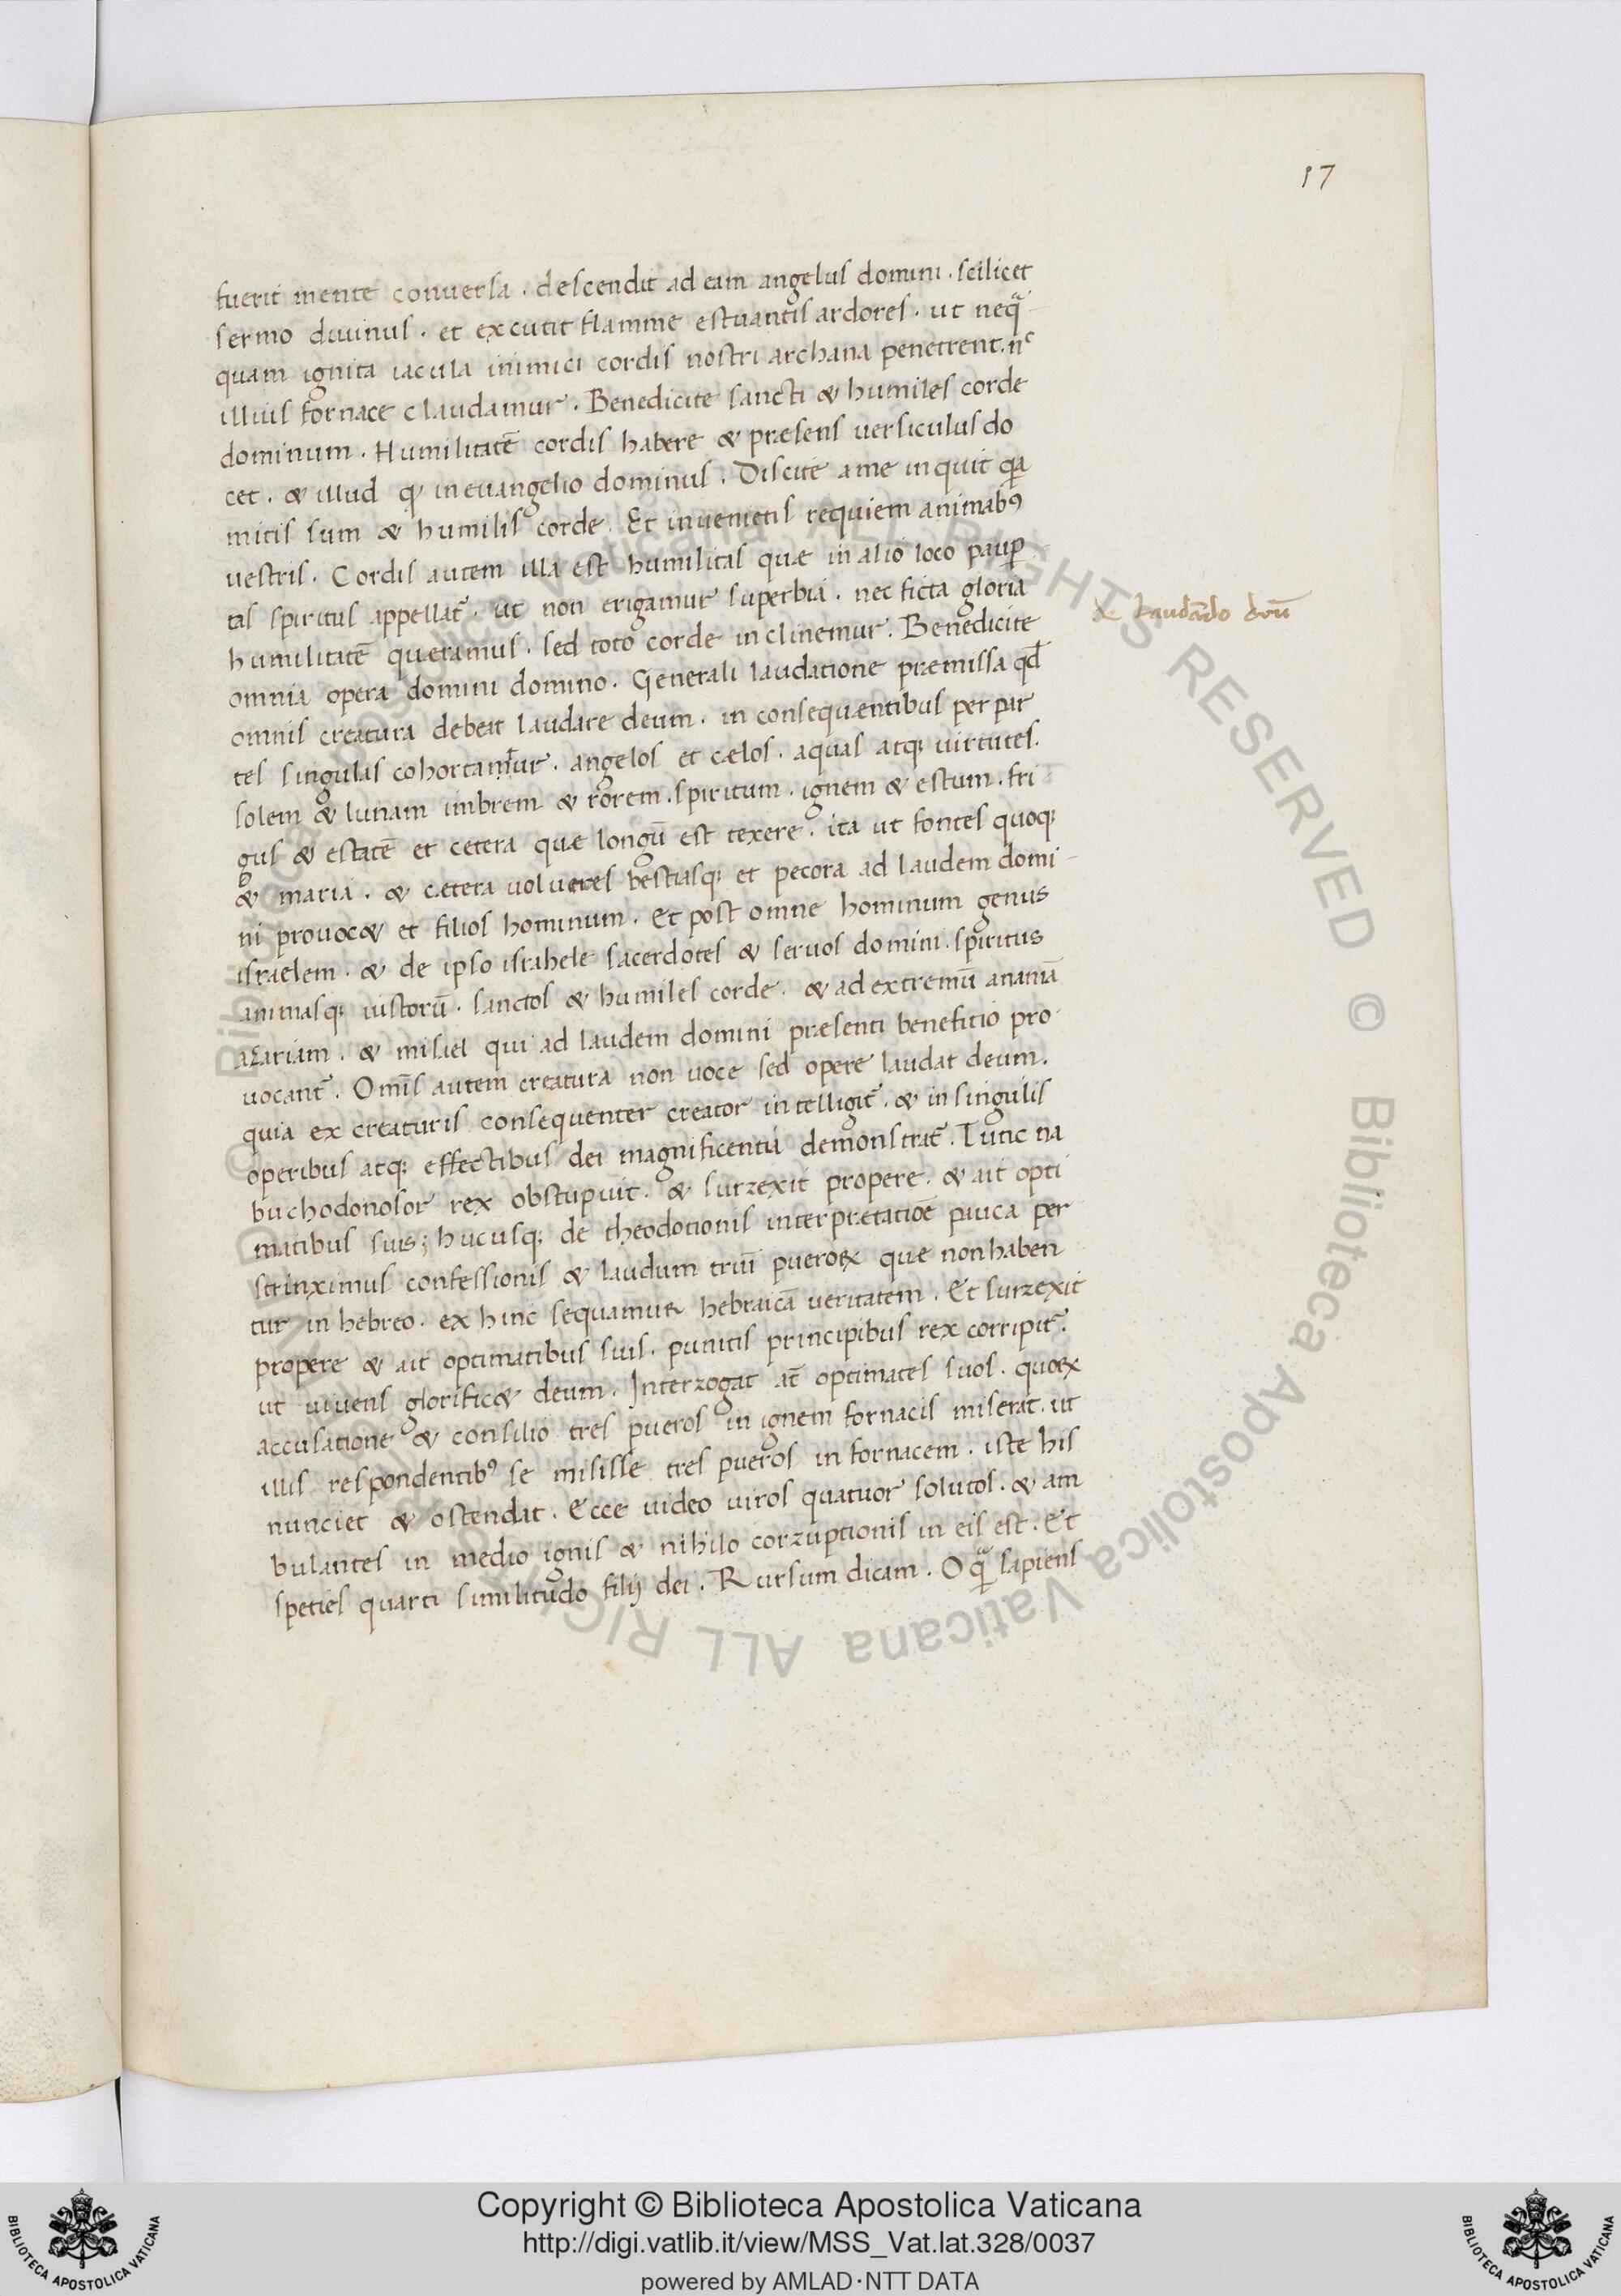 17
fuerit mente conuersa . descendit ad eam angelus domini . scilicet
sermo diuinus . et excutit flamme estuantis ardores . ut neq̃
quam ignita iacula inimici cordis nostri archana penetrent . nͨ
illius fornace claudamur . Benedicite sancti & humiles corde
dominum . Humilitatē cordis habere & præsens uersiculus do
cet . & illud qͦ in euangelio dominus . Discite a me inquit qa
mitis sum & humilis corde . Et inuenietis requiem animabꝰ
uestris . Cordis autem illa est humilitas quæ in alio loco paup̱
tas spiritus appellat̃ . ut non erigamur superbia . nec ficta gloria
humilitatē queramus . sed toto corde inclinemur . Benedicite
omnia opera domini domino . Generali laudatione præmissa qđ
omnis creatura debeat laudare deum . in consequentibus per par
tes singulas cohortantur . angelos et cælos . aquas atq; uirtutes .
solem & lunam imbrem & rorem . spiritum . ignem & estum . fri
gus & estatē et cetera quæ longū est texere . ita ut fontes quoq;
& maria . & cætera uolucres bestiasq; et pecora ad laudem domi-
ni prouoc& et filios hominum . Et post omne hominum genus
israelem . & de ipso israhele sacerdotes & seruos domini . spiritus
animasq; iustorū . sanctos & humiles corde . & ad extremū ananiā
azariam . & misael qui ad laudem domini præsenti benefitio pro
uocant̃ . Omīs autem creatura non uoce sed opere laudat deum .
quia ex creaturis consequenter creator intelligit̃ . & in singulis
operibus atq; effectibus dei magnificentia demonstrat̃ . Tunc na
buchodonosor rex obstupuit . & surrexit propere . & ait opti
matibus suis ; hucusq; de theodotionis interprætatiōe pauca per
strinximus confessionis & laudum triū pueroꝝ quæ non haben
tur in hebreo . ex hinc sequamur hebraicā ueritatem . Et surrexit
propere & ait optimatibus suis . punitis principibus rex corripit̃ .
ut uiuens glorific& deum . Interrogat at̃ optimates suos . quoꝝ
accusatione & consilio tres pueros in ignem fornacis miserat . ut
illis respondentibꝰ se misisse tres pueros in fornacem . iste his
nunciet & ostendat . Ecce uideo uiros quatuor solutos . & am
bulantes in medio ignis & nihilo corruptionis in eis est . Et
speties quarti similitudo filij dei . Rursum dicam . O q̃ sapiens
laudādo
Copyright © Biblioteca Apostolica Vaticana
http://digi.vatlib.it/view/MSS_Vat.lat.328/0037
powered by AMLAD·NTT DATA
BIBLIOTECA APOSTOLICA VATICANA
BIBLIOTECA APOSTOLICA VATICANA